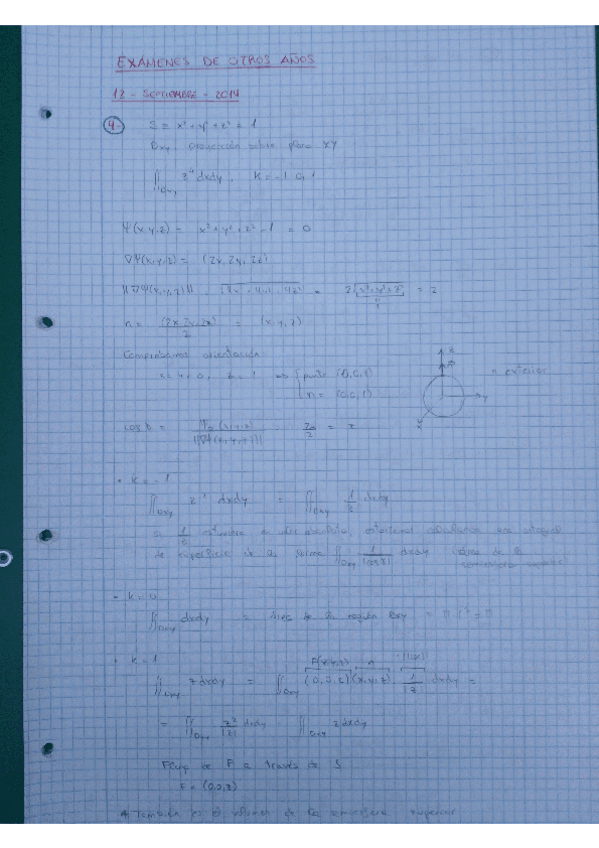 EXÁMENES DE OTROS AÑOS
12 - SEPTIEMBRE - 2014
4- S ≡ x² + y² + z² = 1
Dxy proyección sobre plano XY
∬Dxy z^k dxdy, k = -1, 0, 1
Ψ(x,y,z) = x² + y² + z² - 1 = 0
∇Ψ(x,y,z) = (2x, 2y, 2z)
||∇Ψ(x,y,z)|| = √(4x² + 4y² + 4z²) = 2√(x²+y²+z²) = 2
n = (2x,2y,2z)/2 = (x,y,z)
Comprobamos orientación
punto (0,0,1)
n = (0,0,1)
n exterior
2z/2 = z
• k = -1
∬Dxy z⁻¹ dxdy = ∬Dxy 1/z dxdy
Si 1/z valor absoluto, estaríamos calculando una integral
de superficie de la forma ∬Dxy 1/|cos γ| dxdy
- k = 0
∬Dxy dxdy = Área de la región Dxy = π·1² = π
• k = 1
F(x,y,z) n
∬Dxy z dxdy = ∬Dxy (0,0,z)(x,y,z) 1/|z| dxdy =
= ∬Dxy z²/|z| dxdy = ∬Dxy z dxdy
Flujo de F a través de S
F = (0,0,z)
* También es el volumen de la semiesfera superior